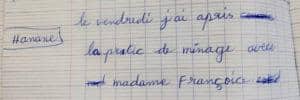 le vendredi j'ai apris
Hanane
la pratic de ménage avec
madame Françoise